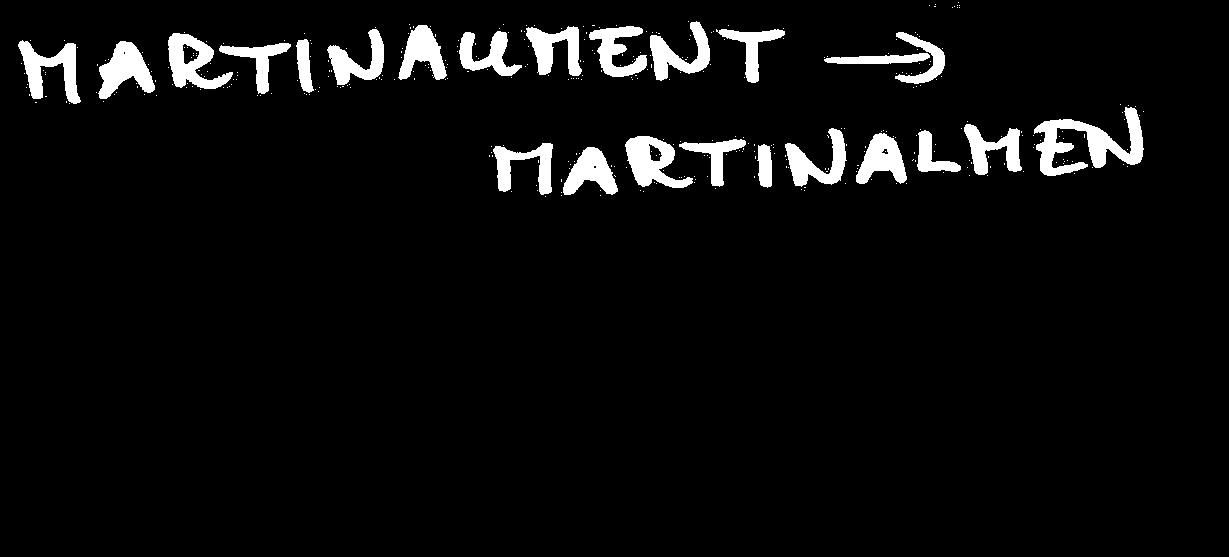 MARTINAUMENT →
MARTINALMEN